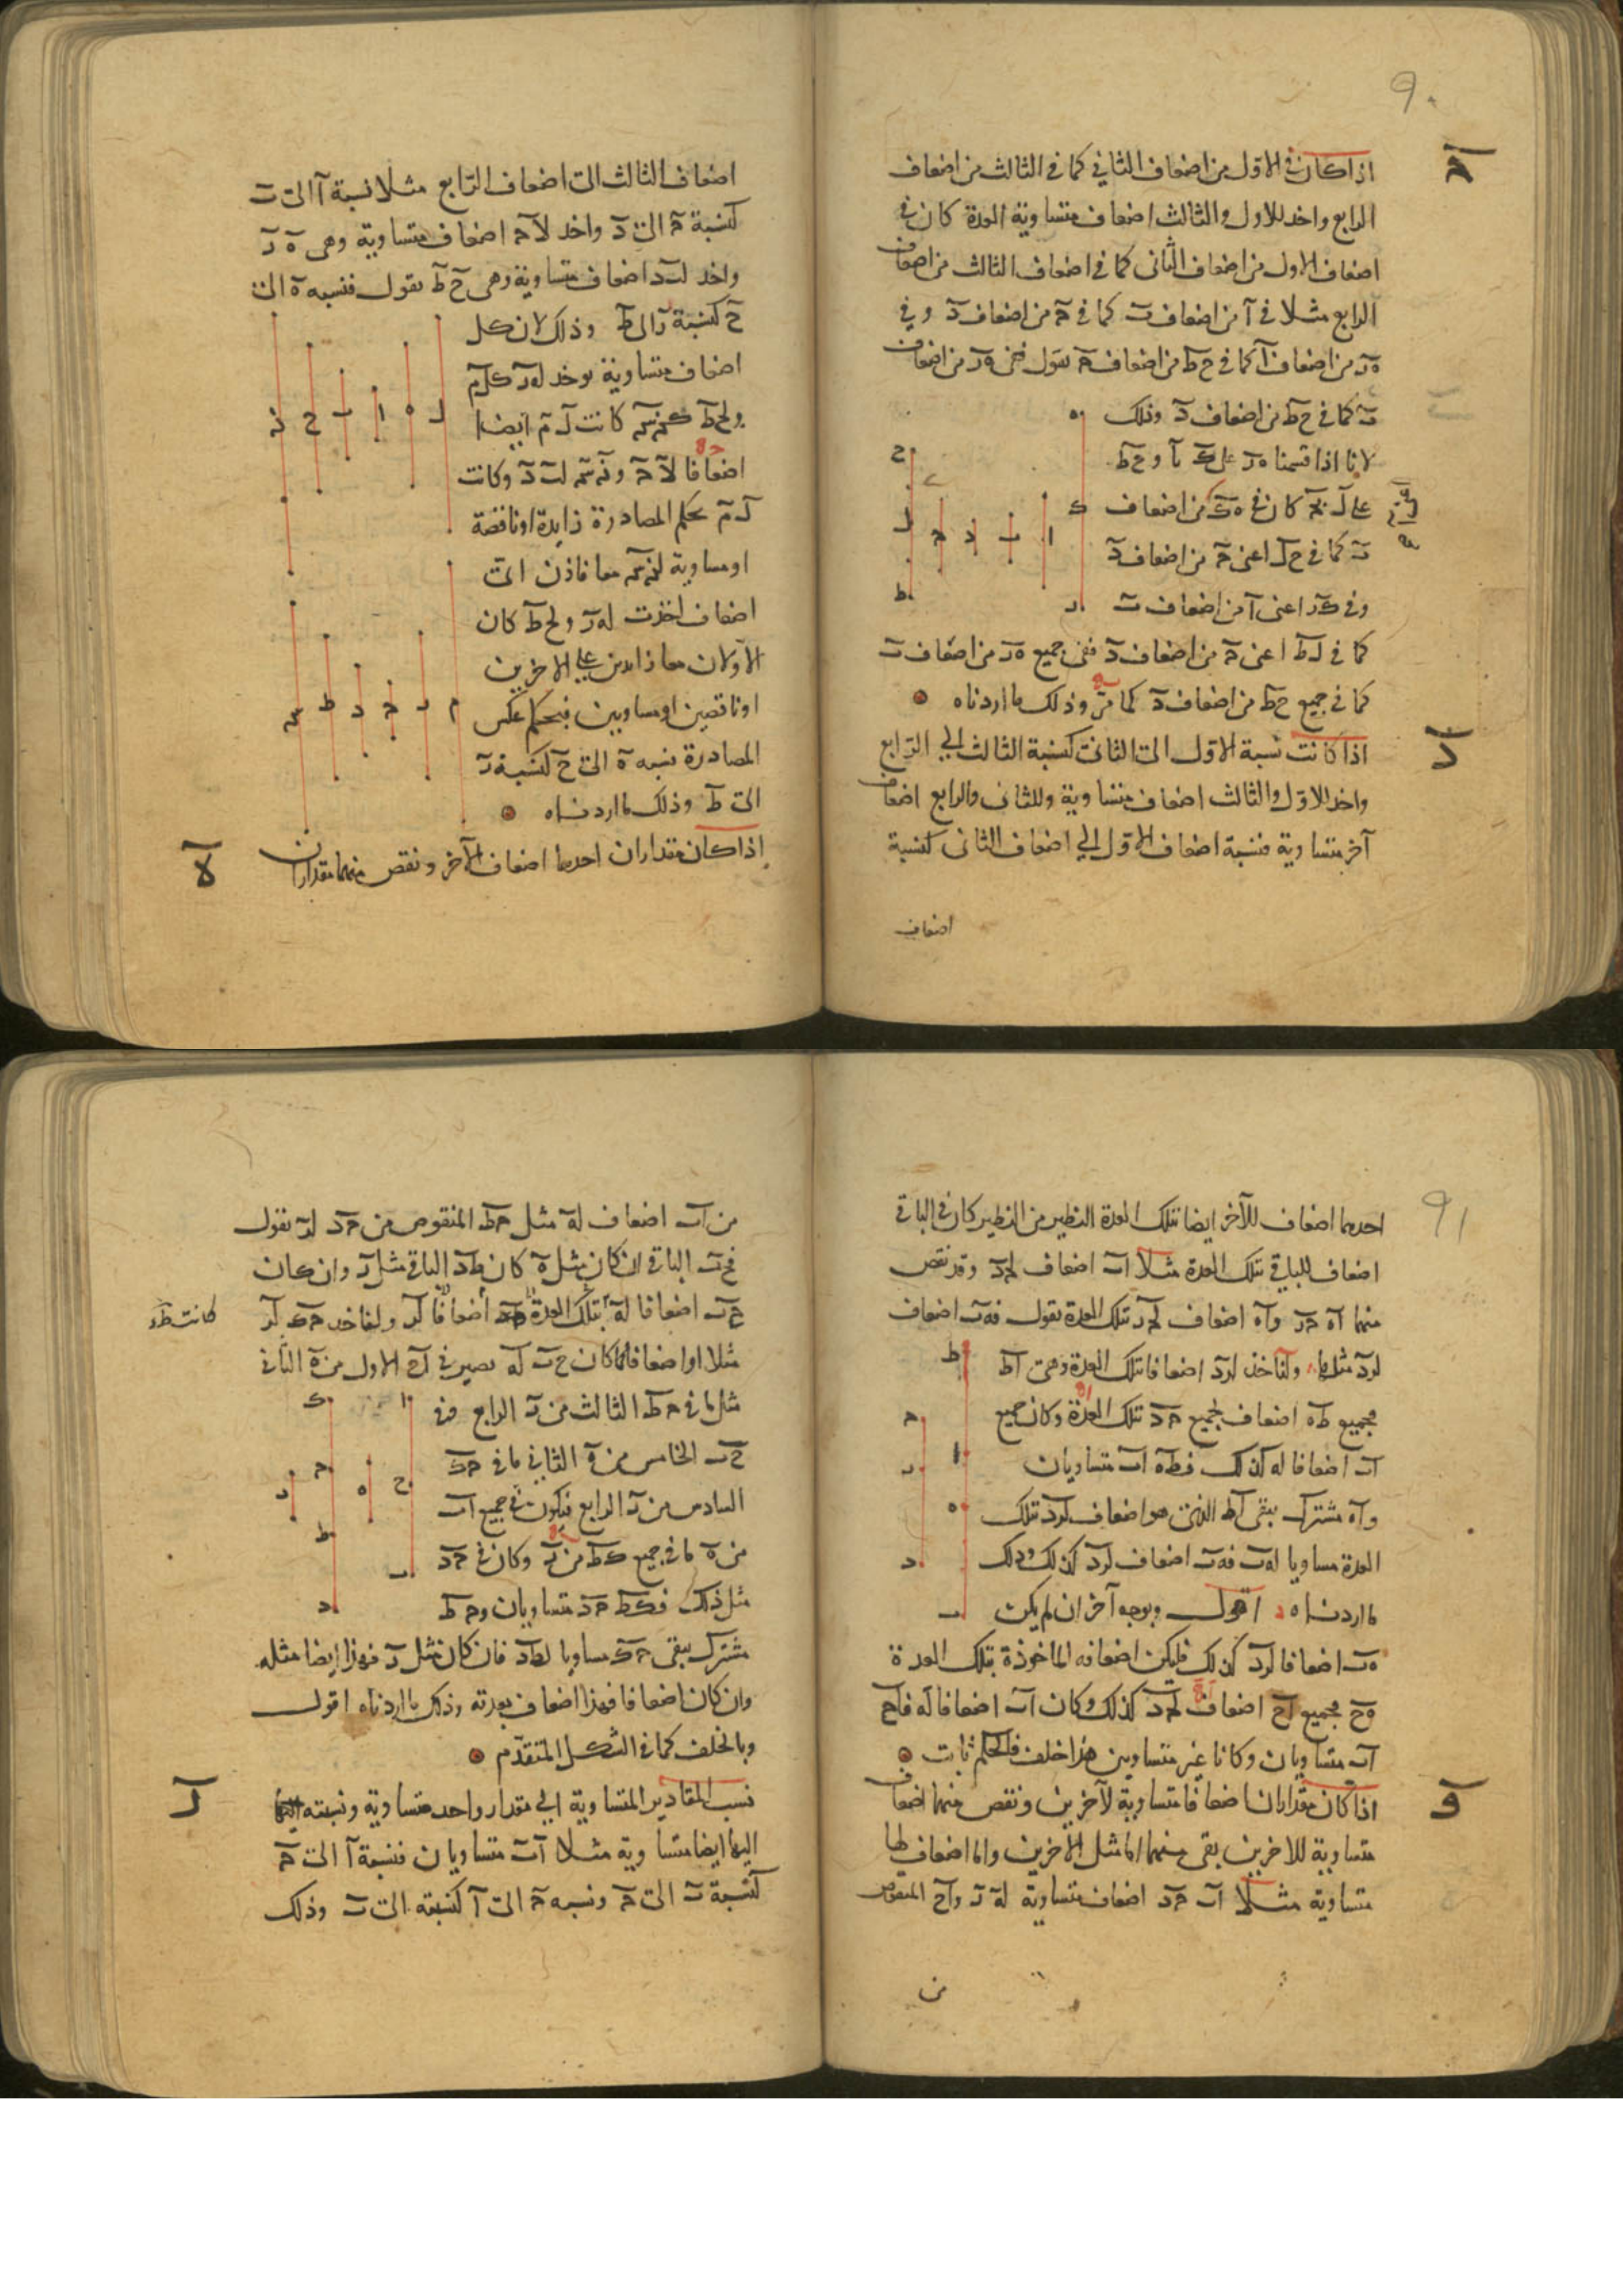 ٩٠
ج
اذا كان في الاول من اضعاف الثاني كما في الثالث من اضعاف
الرابع واخذ للاول والثالث اضعاف متساوية العدة كان في
اضعاف الاول من اضعاف الثانى كما في اضعاف الثالث من اضعاف
الرابع مثلا في آ من اضعاف ب كما في ح من اضعاف د وفي
ه ر من اضعاف آ كما في ح ط من اضعاف ح نقول ففي ه ر من اضعاف
ب كما في ح ط من اضعاف د وذلك
لانا اذا قسمنا ه ر على ك با و ح ط
على ل بح كان في ه ك من اضعاف
ب كما في ح ل اعنى ح من اضعاف د
وفي ك ر اعنى آ من اضعاف ب
كما في ل ط اعنى ح من اضعاف د ففي جميع ه ر من اضعاف ب
كما في جميع ح ط من اضعاف د كما مر وذلك ما اردناه
د
اذا كانت نسبة الاول الى الثانى كنسبة الثالث الي الرابع
واخذ للاول والثالث اضعاف متساوية وللثانى والرابع اضعاف
آخر متساوية فنسبة اضعاف الاول الي اضعاف الثانى كنسبة
اضعاف
اضعاف الثالث الى اضعاف الرابع مثلا نسبة آ الى ب
كنسبة ح الى د واخذ لآ ح اضعاف متساوية وهى ه ر
واخذ لب د اضعاف متساوية وهى ح ط نقول فنسبه ه الى
ح كنسبة ر الى ط وذلك لان كل
اضعاف متساوية توخذ له ر كل م
ولح ط كن س كانت ل م ايضا
اضعافا لآ ح و ن س لب د وكانت
ل م بحكم المصادرة زايدة او ناقصة
او مساوية لن س معا فاذن اى
اضعاف اخذت له ر ولح ط كان
الاولان معا زايدين على الاخرين
او ناقصين او مساويين فبحكم عكس
المصادرة نسبه ه الى ح كنسبة ر
الى ط وذلك ما اردناه
ه
اذا كان مقداران احدهما اضعاف الآخر ونقص منهما مقداران
٩١
احدهما اضعاف للآخر ايضا بتلك العدة النظير من النظير كان في الباقي
اضعاف للباقي بتلك العدة مثلا اب اضعاف لح د وقد نقص
منهما اه ح ر واه اضعاف لح ر بتلك العدة نقول فه ب اضعاف
لر د مثلها ولنأخذ لر د اضعافا بتلك العدة وهى اط
فجميع ط ه اضعاف لجميع ح د بتلك العدة وكان جميع
اب اضعافا له كذلك فط ه اب متساويان
واه مشترك يبقى اط الذى هو اضعاف لر د بتلك
العدة مساويا له ب فه ب اضعاف لر د كذلك وذلك
ما اردناه اقول وبوجه آخر ان لم يكن
ه ب اضعافا لر د كذلك فليكن اضعافه الماخوذة بتلك العدة
ه ح فجميع اح اضعاف لح د كذلك وكان اب اضعافا له فاح
اب متساويان وكانا غير متساويين هذا خلف فالحكم ثابت
و
اذا كان مقداران اضعافا متساوية لآخرين ونقص منهما اضعاف
متساوية للاخرين بقى منهما اما مثل الاخرين واما اضعاف لهما
متساوية مثلا اب ح د اضعاف متساوية له ر واح المنقوص
من
من اب اضعاف له مثل ح ط المنقوص من ح د لر نقول
فح ب الباقي ان كان مثل ه كان ط د الباقي مثل ر وان كان
ح ب اضعافا له بتلك العدة اضعافا لر ولناخذ ح ك لر
كانت ط د
مثلا او اضعافا كما كان ح ب له يصير في اح الاول من ه الثاني
مثل ما في ح ط الثالث من ر الرابع وفي
ح ب الخامس من ه الثاني ما في ح ك
السادس من ر الرابع فيكون في جميع اب
من ه ما في جميع ك ط من ر وكان في ح د
مثل ذلك فك ط ح د متساويان وح ط
مشترك يبقى ح ك مساويا لط د فان كان مثل ر فهذا ايضا مثله
وان كان اضعافا فهذا اضعاف بعدته وذلك ما اردناه اقول
وبالخلف كما في الشكل المتقدم
ز
نسب المقادير المتساوية الي مقدار واحد متساوية ونسبته
اليها ايضا متساوية مثلا آ ب متساويان فنسبة آ الى ح
كنسبة ب الى ح ونسبه ح الى آ كنسبته الى ب وذلك